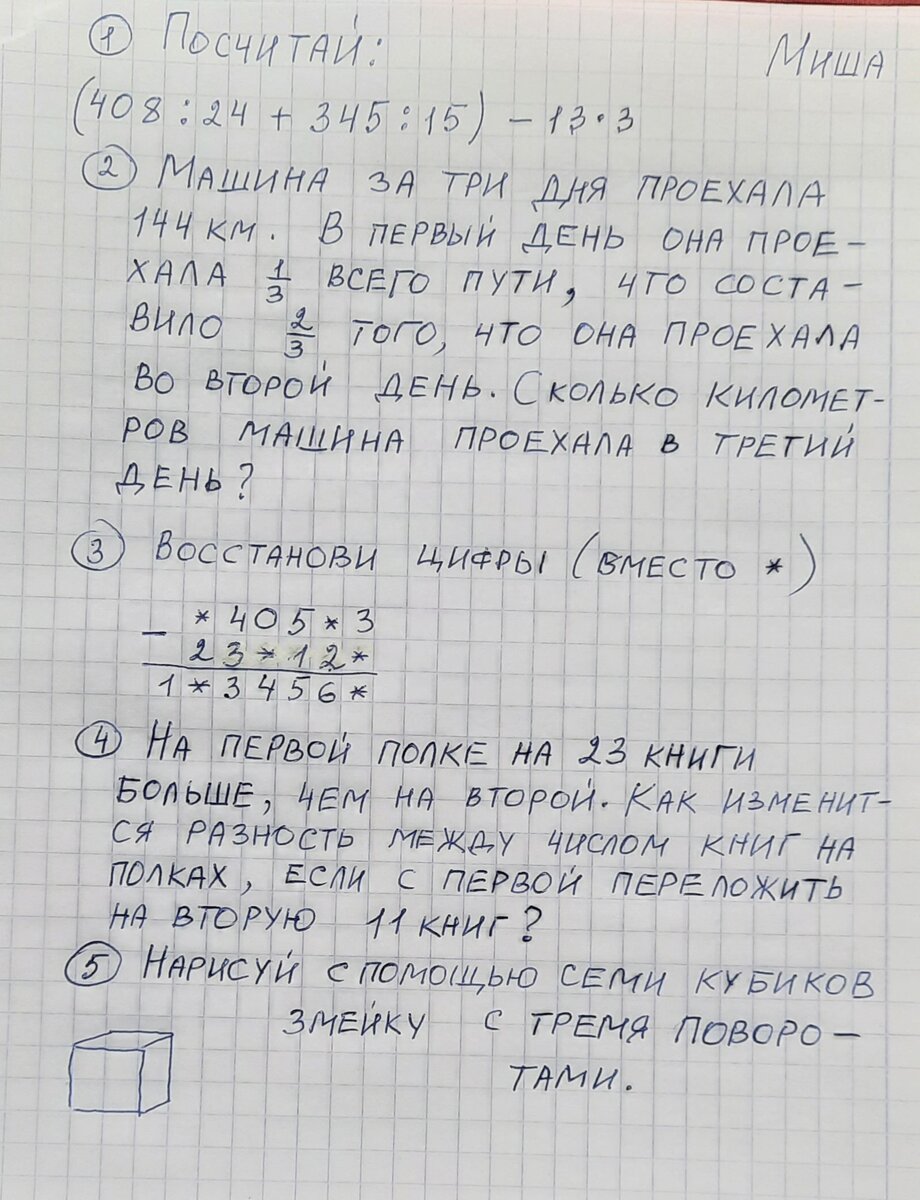 ① Посчитай:
Миша
(408 : 24 + 345 : 15) - 13 · 3
② Машина за три дня проехала
144 км. В первый день она прое-
хала 1/3 всего пути, что соста-
вило 2/3 того, что она проехала
во второй день. Сколько километ-
ров машина проехала в третий
день?
③ Восстанови цифры (вместо *)
- * 4 0 5 * 3
2 3 * 1 2 *
1 * 3 4 5 6 *
④ На первой полке на 23 книги
больше, чем на второй. Как изменит-
ся разность между числом книг на
полках, если с первой переложить
на вторую 11 книг?
⑤ Нарисуй с помощью семи кубиков
змейку с тремя поворо-
тами.